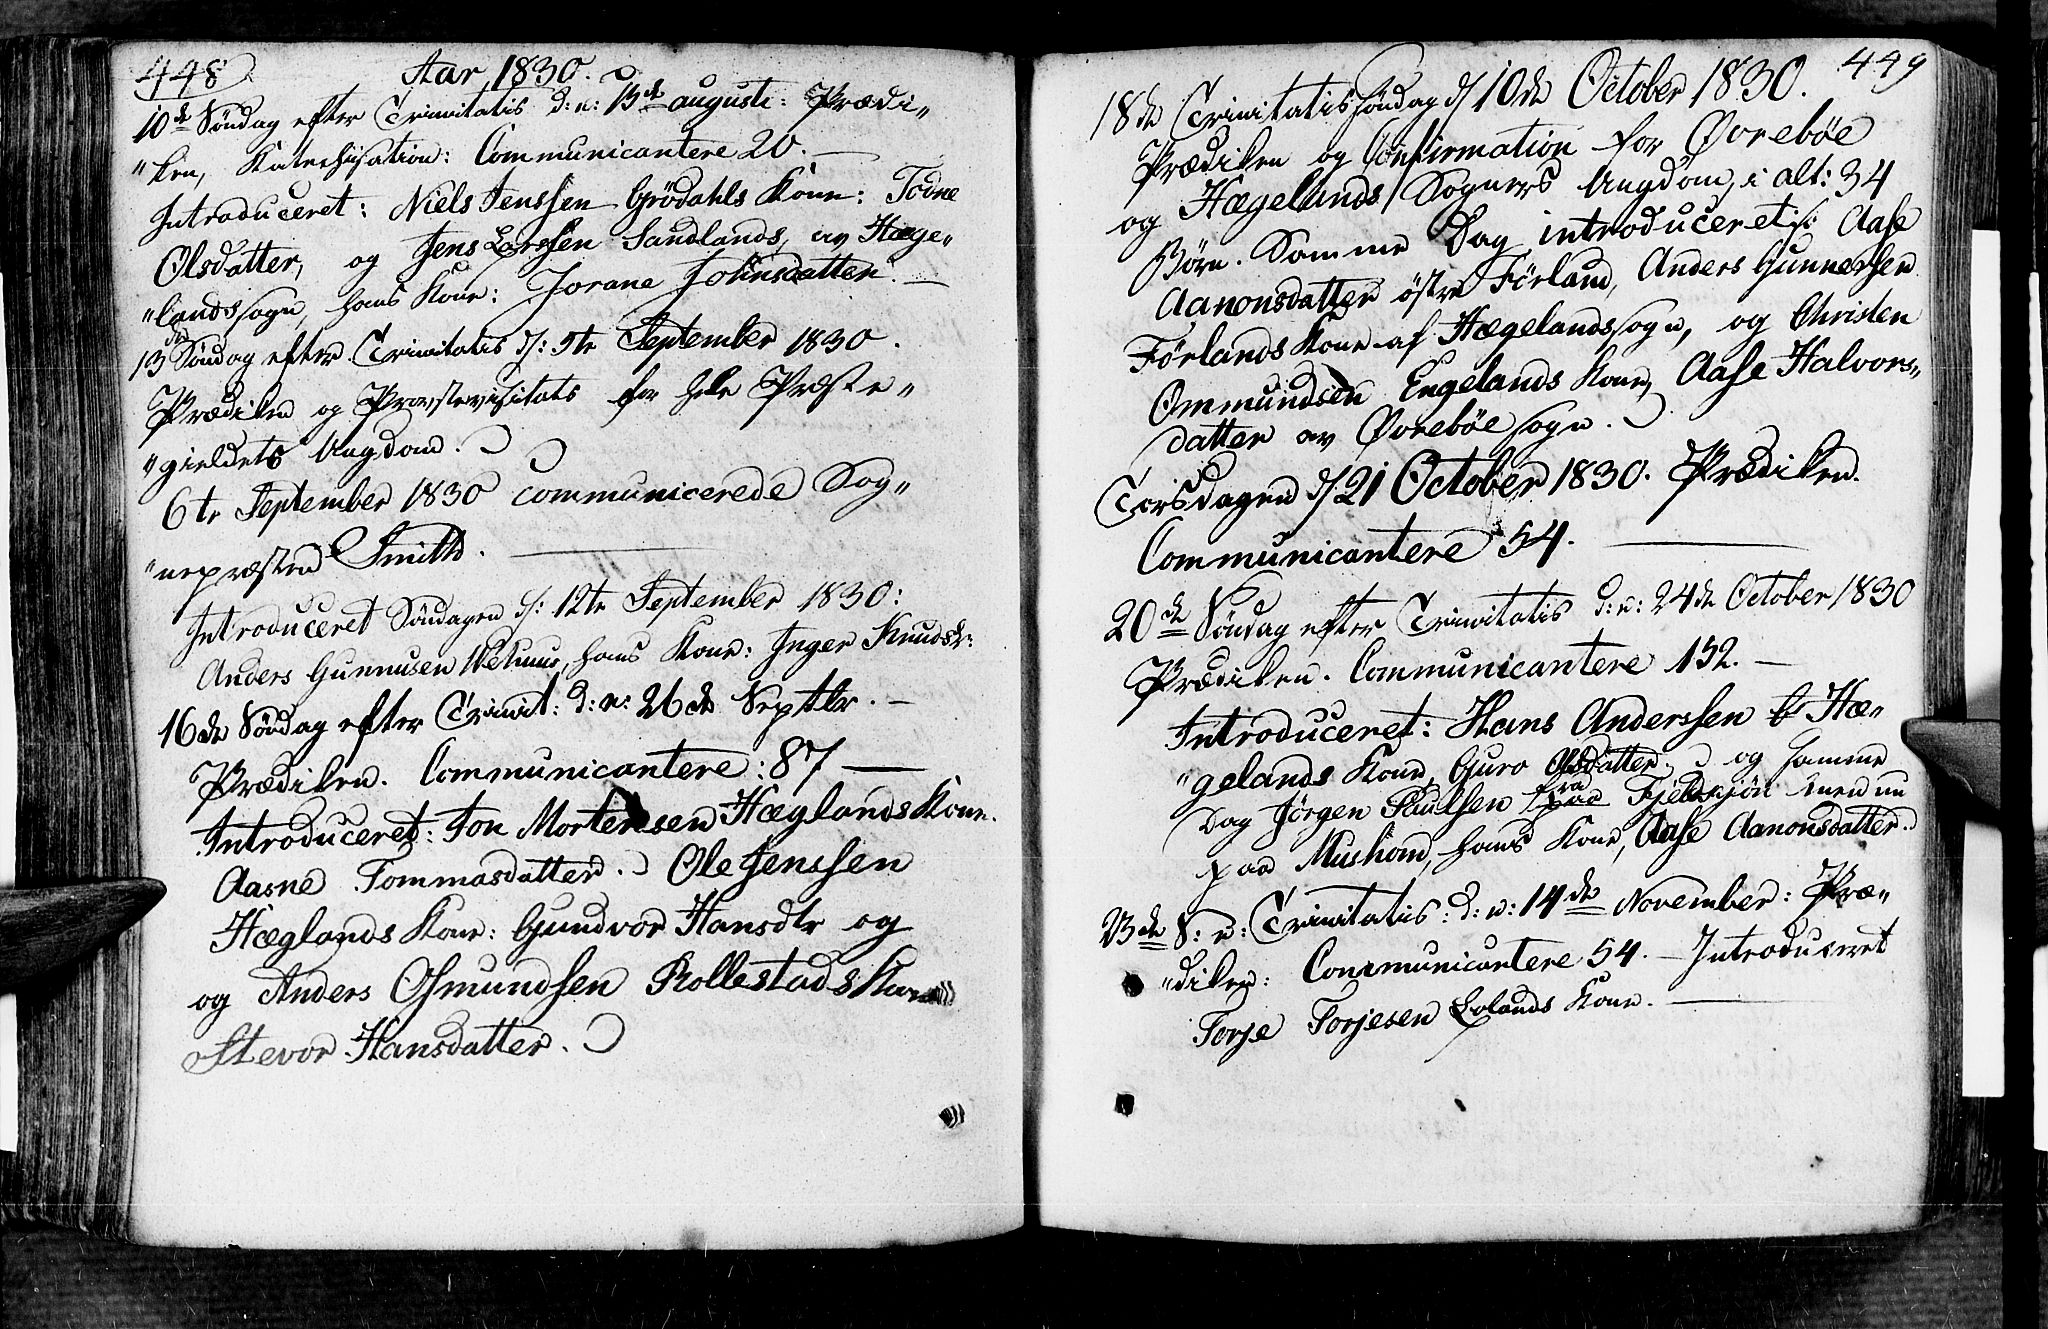 448.
Aar, 1830.
10de Søndag efter Trinitatis d: e: 15de augusti: Prædi„
„ken, Katechisation: Communicantere 20. —
Introduceret: Niels Jenssen Grödahls Kone: Todne
Olsdatter, og Jens Larssen Sandlands, av Hæge„
„landssogn, hans Kone: Jorane Johnsdatter. —
13de Søndag efter Trinitatis d: 5te September 1830.
Prædiken og Provstevisitats for hele Præste„
„gieldets Ungdom.
6te September 1830 communicerede Sog„
„nepræsten Smith. —
Introduceret Søndagen d: 12te September 1830:
Anders Gunnusen hans Kone: Inger Knudsd:
16de Søndag efter Trinit: d: e: 26de Septbr. —
Prædiken. Communicantere: 87 —
Introduceret: Jon Mortensen Hæglands Kone.
Aasne Tommasdatter. Ole Jenssen
Hæglands Kone: Gundvor Hansdtr og
og Anders Osmundsen Rollestads Kone
Stevor Hansdatter.
449
18de Trinitatissøndag d/ 10de October 1830.
Prædiken og Confirmation for Øvrebøe
og Hægelands Sogners Ungdom, i alt: 34
Börn. Samme Dag introduceret: Aase
Aanonsdatter östre Förland, Anders Gunnersen
Förlands Kone af Hægelandssogn, og Christen
Ommundsen Engelands Kone, Aase Halvors„
datter av Øvrebøe sogn.
Torsdagen d/ 21 October 1830. Prædiken.
Communicantere 54. —
20de Søndag efter Trinitatis d: e: 24de October 1830
Prædiken. Communicantere 152. —
Introduceret: Hans Anderssen Hæ„
„gelands Kone, Guro Olsdatter. og samme
Dag Jörgen Paulsen fra Fjeldsjön men nu
paa Mushom, hans Kone, Aase Aanonsdatter.
23de S: e: Trinitatis: d: e: 14de November: Præ„
„diken: Communicantere 54. — Introduceret
Torje Torjesen Lolands Kone. —